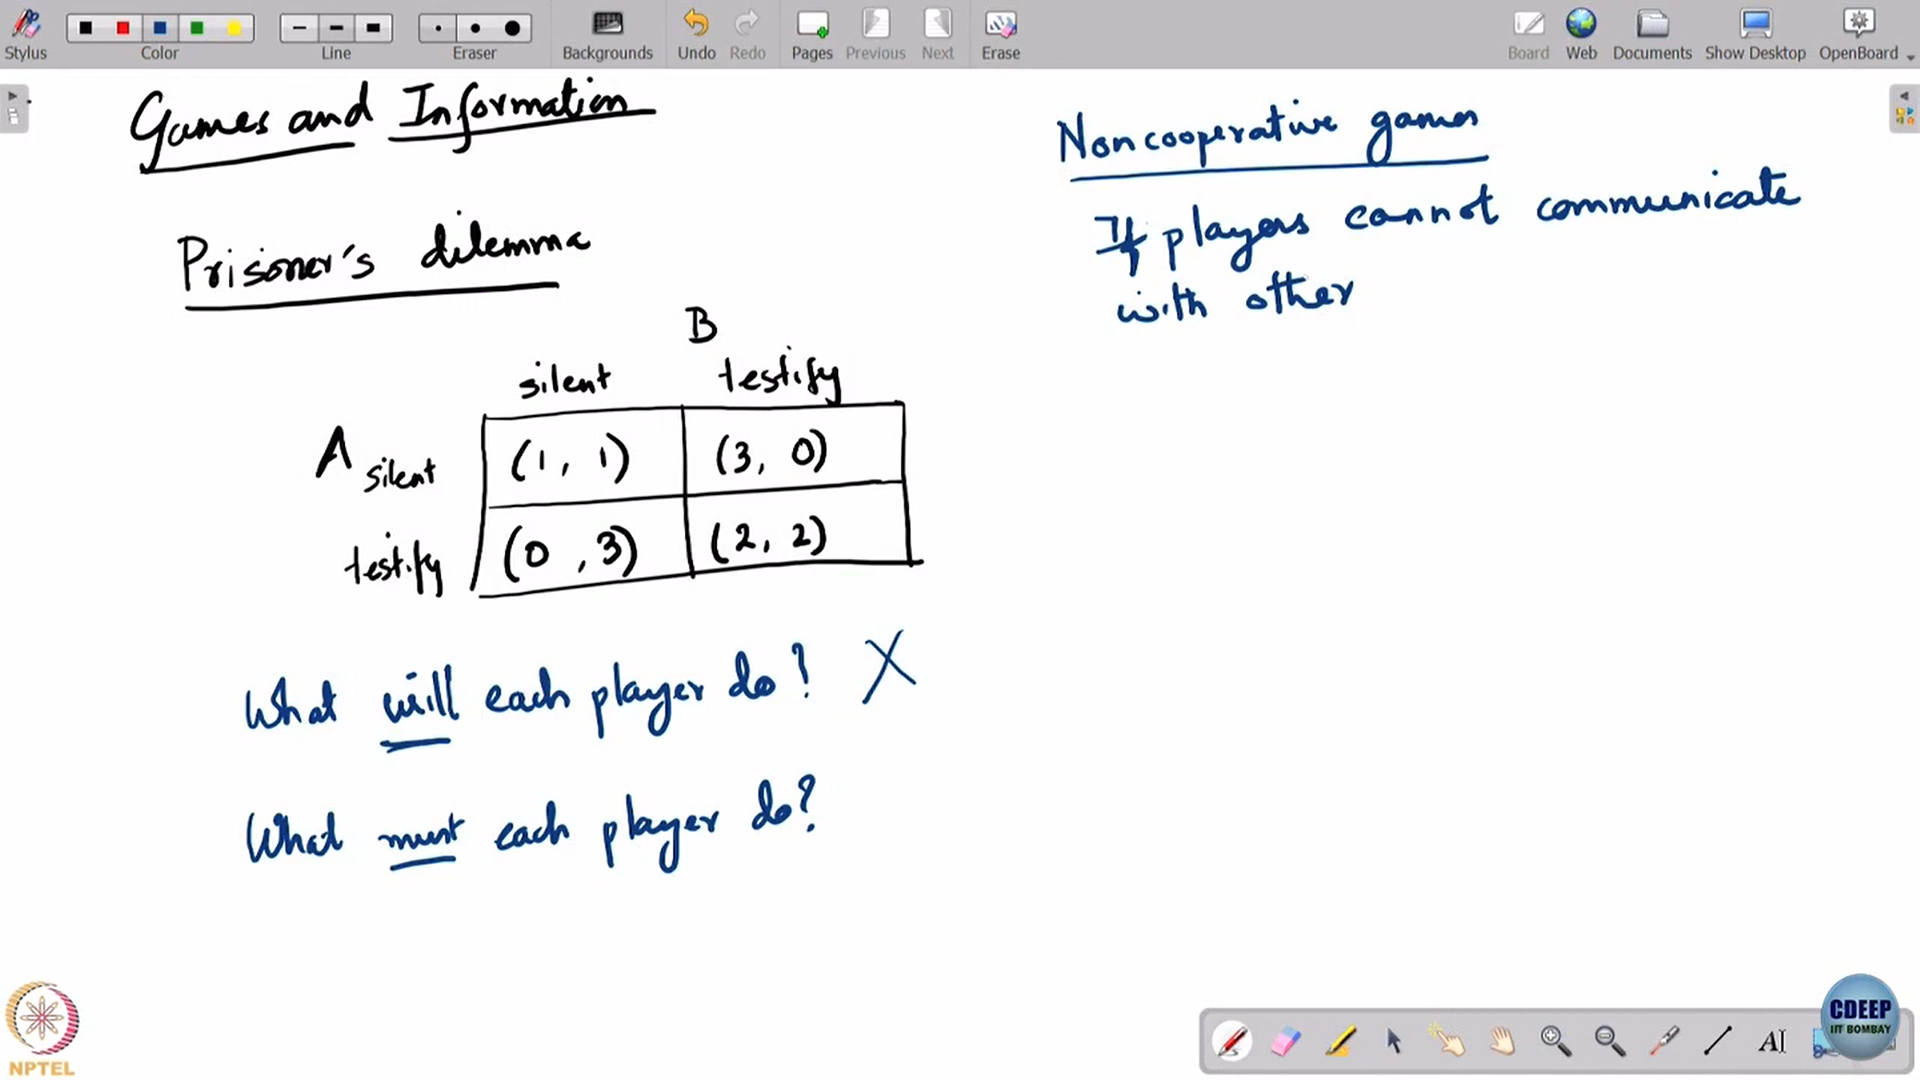 Stylus
Color
Line
Eraser
Backgrounds
Undo
Redo
Pages
Previous
Next
Erase
Board
Web
Documents
Show Desktop
OpenBoard
Games and Information
Prisoner's dilemma
B
silent testify
A silent (1, 1) (3, 0)
testify (0, 3) (2, 2)
What will each player do? X
What must each player do?
Noncooperative games
If players cannot communicate
with other
NPTEL
CDEEP
IIT BOMBAY